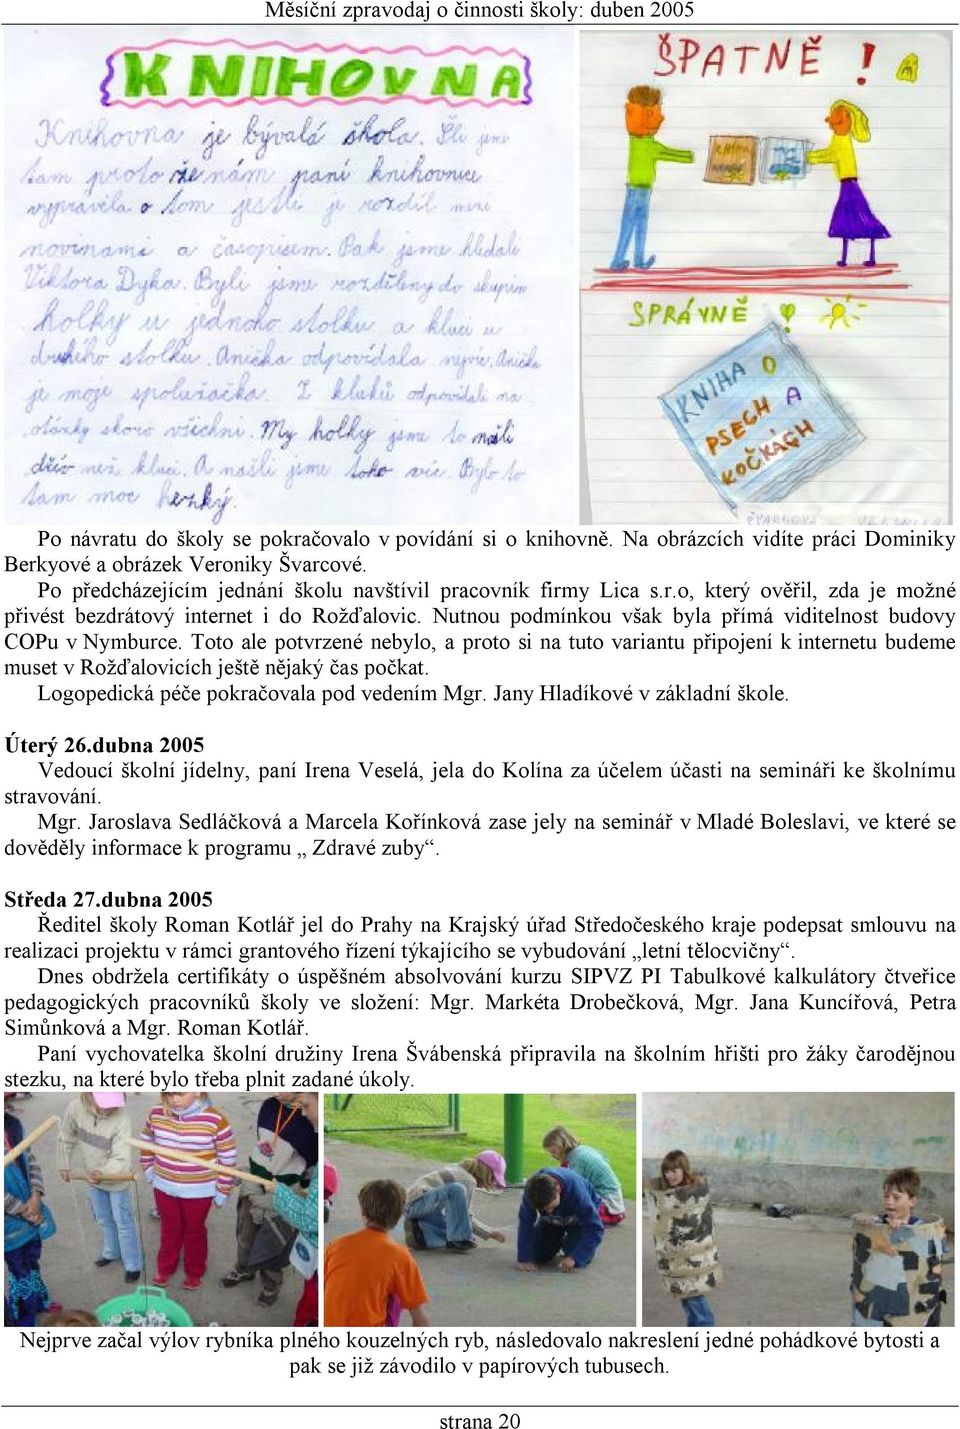 Měsíční zpravodaj o činnosti školy: duben 2005
KNIHOVNA
Knihovna je bývalá škola. Šli jsme
tam proto že nám paní knihovnice
vyprávěla o tom jestli je rozdíl mezi
novinami a časopisem. Pak jsme hledali
Viktora Dyka. Byli jsme rozděleny do skupin
holky u jednoho stolku a kluci u
druhého stolku. Anička odpovídala nejvíc. Anička
je moje spolužačka. Z kluků odpovídali na
otázky skoro všichni. My holky jsme to našli
dřív než kluci. A našli jsme toho víc. Bylo to
tam moc hezký.
ŠPATNĚ!
KNIHA
SPRÁVNĚ!
KNIHA O
PSECH A
KOČKÁCH
Po návratu do školy se pokračovalo v povídání si o knihovně. Na obrázcích vidíte práci Dominiky
Berkyové a obrázek Veroniky Švarcové.
Po předcházejícím jednání školu navštívil pracovník firmy Lica s.r.o, který ověřil, zda je možné
přivést bezdrátový internet i do Rožďalovic. Nutnou podmínkou však byla přímá viditelnost budovy
COPu v Nymburce. Toto ale potvrzené nebylo, a proto si na tuto variantu připojení k internetu budeme
muset v Rožďalovicích ještě nějaký čas počkat.
Logopedická péče pokračovala pod vedením Mgr. Jany Hladíkové v základní škole.
Úterý 26.dubna 2005
Vedoucí školní jídelny, paní Irena Veselá, jela do Kolína za účelem účasti na semináři ke školnímu
stravování.
Mgr. Jaroslava Sedláčková a Marcela Kořínková zase jely na seminář v Mladé Boleslavi, ve které se
dověděly informace k programu „ Zdravé zuby“.
Středa 27.dubna 2005
Ředitel školy Roman Kotlář jel do Prahy na Krajský úřad Středočeského kraje podepsat smlouvu na
realizaci projektu v rámci grantového řízení týkajícího se vybudování „letní tělocvičny“.
Dnes obdržela certifikáty o úspěšném absolvování kurzu SIPVZ PI Tabulkové kalkulátory čtveřice
pedagogických pracovníků školy ve složení: Mgr. Markéta Drobečková, Mgr. Jana Kuncířová, Petra
Simůnková a Mgr. Roman Kotlář.
Paní vychovatelka školní družiny Irena Švábenská připravila na školním hřišti pro žáky čarodějnou
stezku, na které bylo třeba plnit zadané úkoly.
Nejprve začal výlov rybníka plného kouzelných ryb, následovalo nakreslení jedné pohádkové bytosti a
pak se již závodilo v papírových tubusech.
strana 20